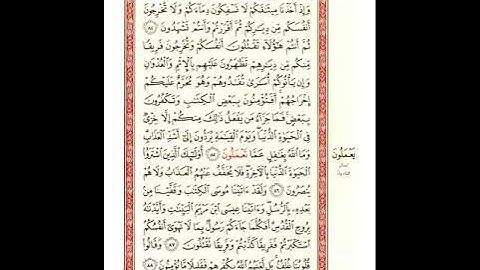 وَإِذْ أَخَذْنَا مِيثَٰقَكُمْ لَا تَسْفِكُونَ دِمَآءَكُمْ وَلَا تُخْرِجُونَ
أَنفُسَكُم مِّن دِيَٰرِكُمْ ثُمَّ أَقْرَرْتُمْ وَأَنتُمْ تَشْهَدُونَ ٨٤
ثُمَّ أَنتُمْ هَٰٓؤُلَآءِ تَقْتُلُونَ أَنفُسَكُمْ وَتُخْرِجُونَ فَرِيقًا
مِّنكُم مِّن دِيَٰرِهِمْ تَظَٰهَرُونَ عَلَيْهِم بِٱلْإِثْمِ وَٱلْعُدْوَٰنِ
وَإِن يَأْتُوكُمْ أُسَٰرَىٰ تُفَٰدُوهُمْ وَهُوَ مُحَرَّمٌ عَلَيْكُمْ
إِخْرَاجُهُمْ أَفَتُؤْمِنُونَ بِبَعْضِ ٱلْكِتَٰبِ وَتَكْفُرُونَ
بِبَعْضٍ فَمَا جَزَآءُ مَن يَفْعَلُ ذَٰلِكَ مِنكُمْ إِلَّا خِزْىٌ
فِى ٱلْحَيَوٰةِ ٱلدُّنْيَا وَيَوْمَ ٱلْقِيَٰمَةِ يُرَدُّونَ إِلَىٰٓ أَشَدِّ ٱلْعَذَابِ
وَمَا ٱللَّهُ بِغَٰفِلٍ عَمَّا يَعْمَلُونَ ٨٥ أُو۟لَٰٓئِكَ ٱلَّذِينَ ٱشْتَرَوُا۟
يَعْمَلُونَ
ٱلْحَيَوٰةَ ٱلدُّنْيَا بِٱلْءَاخِرَةِ فَلَا يُخَفَّفُ عَنْهُمُ ٱلْعَذَابُ وَلَا هُمْ
يُنصَرُونَ ٨٦ وَلَقَدْ ءَاتَيْنَا مُوسَى ٱلْكِتَٰبَ وَقَفَّيْنَا مِنۢ
بَعْدِهِۦ بِٱلرُّسُلِ وَءَاتَيْنَا عِيسَى ٱبْنَ مَرْيَمَ ٱلْبَيِّنَٰتِ وَأَيَّدْنَٰهُ
بِرُوحِ ٱلْقُدُسِ أَفَكُلَّمَا جَآءَكُمْ رَسُولٌۢ بِمَا لَا تَهْوَىٰٓ أَنفُسُكُمُ
ٱسْتَكْبَرْتُمْ فَفَرِيقًا كَذَّبْتُمْ وَفَرِيقًا تَقْتُلُونَ ٨٧ وَقَالُوا۟
قُلُوبُنَا غُلْفٌۢ بَل لَّعَنَهُمُ ٱللَّهُ بِكُفْرِهِمْ فَقَلِيلًا مَّا يُؤْمِنُونَ ٨٨